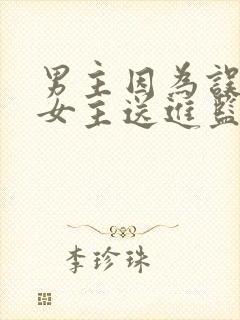 男主因為誤
女主送進監
李珍珠